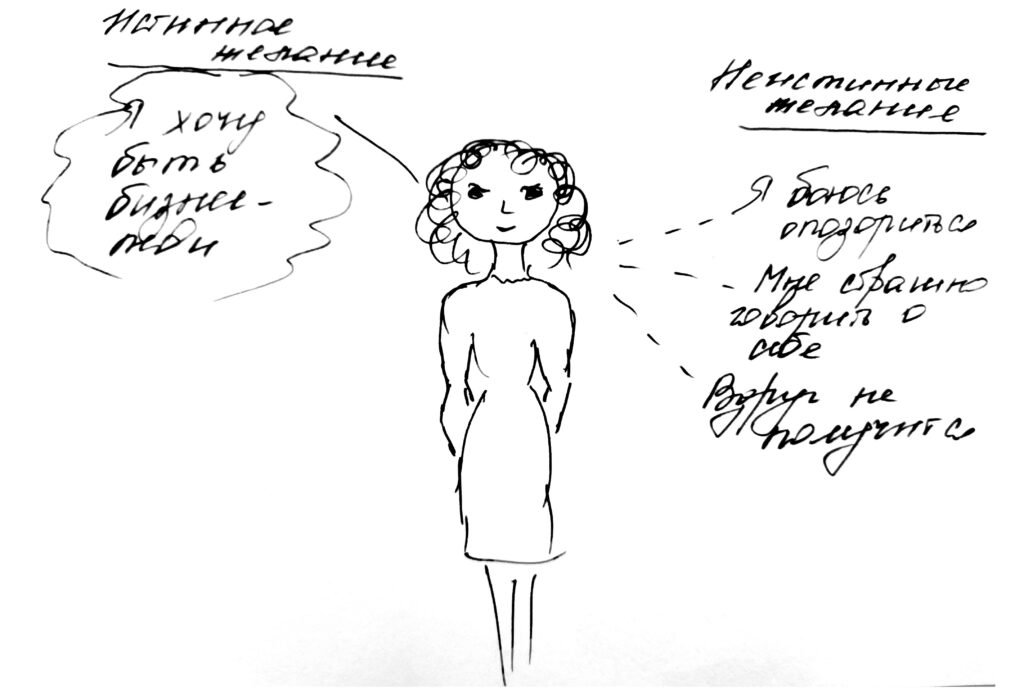 Истинное
желание
Я хочу
быть
бизне-
леди
Неистинные
желание
Я боюсь
опозориться
Мне страшно
говорить о
себе
Вдруг не
получится